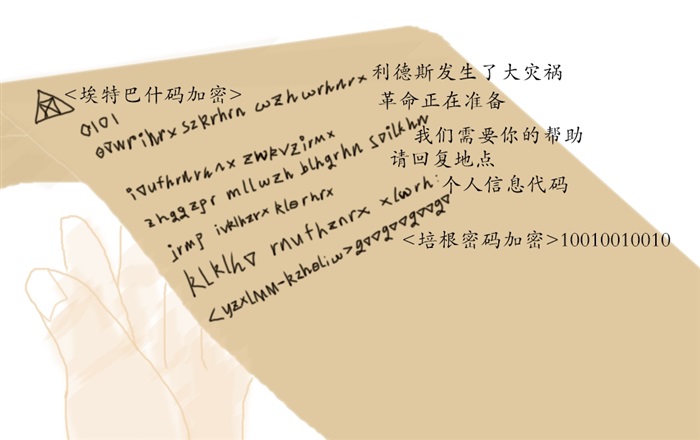 <埃特巴什码加密>
0101
szkrhrn wzh wrhnrx 利德斯发生了大灾祸
革命正在准备
zwkvzirmx 我们需要你的帮助
zhggzpr mllwzh blhgrhn 请回复地点
jrmp ivklhzrx 个人信息代码
klklh∇ xlwrh:
g∇∇g∇∇g∇∇g∇ <培根密码加密>10010010010